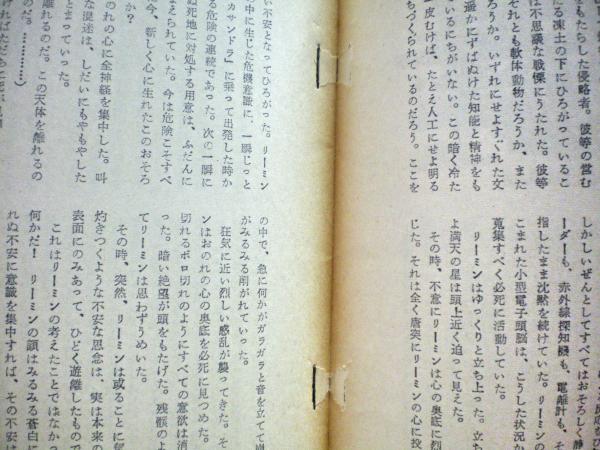 をもたらした侵略者。彼等の営む
る凍土の下にひろがっているこ
は不思議な戦慄にうたれた。彼等
それとも軟体動物だろうか、また
ろうか。いずれにせよすぐれた文
遥かにずばぬけた知能と精神をも
ているにちがいない。この暗く冷た
皮むけば、たとえ人工にせよ明る
ちづくられているのだろう。ここを
しかしいぜんとしてすべてはおそろしく静
ーダーも、赤外線探知機も、電離計も、そ
指したまま沈黙を続けていた。リーミンの
こまれた小型電子頭脳は、こうした状況か
蒐集すべく必死に活動していた。
リーミンはゆっくりと立ち上った。立ち
よ満天の星は頭上近く迫って見えた。
その時、不意にリーミンは心の奥底に烈
じた。それは全く唐突にリーミンの心に投
い不安となってひろがった。リーミン
中に生じた危機意識に、一瞬じっと
カサンドラ』に乗って出発した時か
る危険の連続であった。次の一瞬に
ぬ死地に対処する用意は、ふだんに
まえられていた。今は危険こそすべ
今、新しく心に生れたこのおそろ
か?
のれの心に全神経を集中した。叫
な混迷は、しだいにもやもやした
とまっていった。
離れるのだ。この天体を離れるの
のだ。…………)
の中で、急に何かがガラガラと音を立てて崩
がみるみる削がれていった。
狂気に近い烈しい惑乱が襲ってきた。そ
ンはおのれの心の奥底を必死に見つめた。
切れるボロ切れのようにすべての意欲は消
った。暗い絶望が頭をもたげた。残骸のよ
てリーミンは思わずうめいた。
その時、突然、リーミンは或ることに気
灼きつくような不安な思念は、実は本来の
表面にのみあって、ひどく遊離したもので
これはリーミンの考えたことではなかっ
何かだ! リーミンの顔はみるみる蒼白に
れぬ不安に意識を集中すれば、その不安は